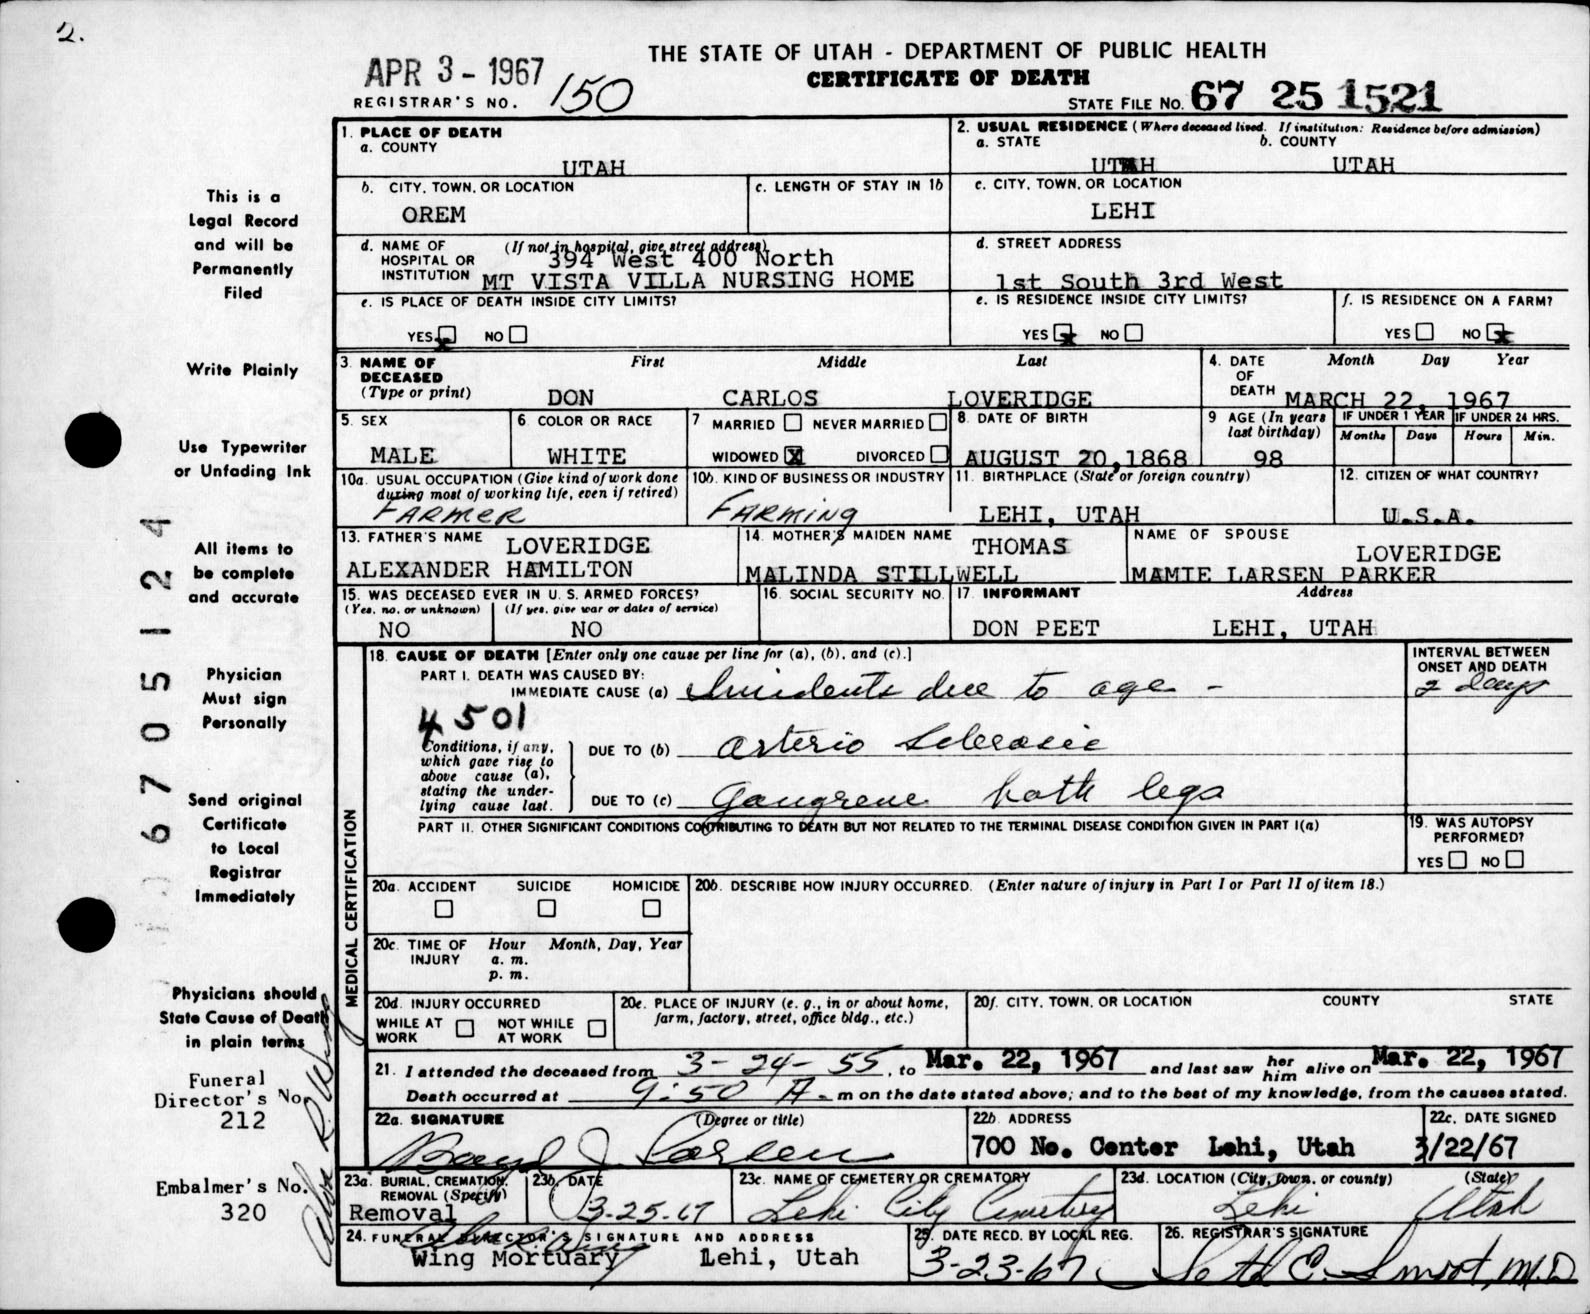 2.
THE STATE OF UTAH - DEPARTMENT OF PUBLIC HEALTH
CERTIFICATE OF DEATH
APR 3 - 1967
REGISTRAR'S NO. 150
STATE FILE NO. 67 25 1521
1. PLACE OF DEATH
a. COUNTY
UTAH
2. USUAL RESIDENCE (Where deceased lived. If institution: Residence before admission)
a. STATE b. COUNTY
UTAH UTAH
b. CITY, TOWN, OR LOCATION
OREM
c. LENGTH OF STAY IN 1b
c. CITY, TOWN, OR LOCATION
LEHI
d. NAME OF HOSPITAL OR INSTITUTION
(If not in hospital, give street address)
394 West 400 North
MT VISTA VILLA NURSING HOME
d. STREET ADDRESS
1st South 3rd West
e. IS PLACE OF DEATH INSIDE CITY LIMITS?
YES x NO
e. IS RESIDENCE INSIDE CITY LIMITS?
YES x NO
f. IS RESIDENCE ON A FARM?
YES NO x
3. NAME OF DECEASED (Type or print)
First Middle Last
DON CARLOS LOVERIDGE
4. DATE OF DEATH
Month Day Year
MARCH 22, 1967
5. SEX
MALE
6. COLOR OR RACE
WHITE
7 MARRIED NEVER MARRIED
WIDOWED X DIVORCED
8. DATE OF BIRTH
AUGUST 20,1868
9 AGE (In years last birthday)
98
IF UNDER 1 YEAR
Months Days
IF UNDER 24 HRS.
Hours Min.
10a. USUAL OCCUPATION (Give kind of work done during most of working life, even if retired)
FARMER
10b. KIND OF BUSINESS OR INDUSTRY
FARMING
11. BIRTHPLACE (State or foreign country)
LEHI, UTAH
12. CITIZEN OF WHAT COUNTRY?
U.S.A.
13. FATHER'S NAME
LOVERIDGE
ALEXANDER HAMILTON
14. MOTHER'S MAIDEN NAME
THOMAS
MALINDA STILLWELL
NAME OF SPOUSE
LOVERIDGE
MAMIE LARSEN PARKER
15. WAS DECEASED EVER IN U.S. ARMED FORCES?
(Yes, no, or unknown) (If yes, give war or dates of service)
NO NO
16. SOCIAL SECURITY NO.
17. INFORMANT Address
DON PEET LEHI, UTAH
MEDICAL CERTIFICATION
18. CAUSE OF DEATH [Enter only one cause per line for (a), (b), and (c).]
INTERVAL BETWEEN ONSET AND DEATH
PART I. DEATH WAS CAUSED BY:
IMMEDIATE CAUSE (a) due to age -
2 days
4501
Conditions, if any, which gave rise to above cause (a), stating the underlying cause last.
DUE TO (b) Arterio
DUE TO (c) Gangrene both legs
PART II. OTHER SIGNIFICANT CONDITIONS CONTRIBUTING TO DEATH BUT NOT RELATED TO THE TERMINAL DISEASE CONDITION GIVEN IN PART I(a)
19. WAS AUTOPSY PERFORMED?
YES NO
20a. ACCIDENT SUICIDE HOMICIDE
20b. DESCRIBE HOW INJURY OCCURRED. (Enter nature of injury in Part I or Part II of item 18.)
20c. TIME OF INJURY
Hour Month, Day, Year
a. m.
p. m.
20d. INJURY OCCURRED
WHILE AT WORK NOT WHILE AT WORK
20e. PLACE OF INJURY (e. g., in or about home, farm, factory, street, office bldg., etc.)
20f. CITY, TOWN, OR LOCATION COUNTY STATE
21. I attended the deceased from 3-24-55, to Mar. 22, 1967 and last saw her him alive on Mar. 22, 1967
Death occurred at 9:50 A. m on the date stated above; and to the best of my knowledge, from the causes stated.
22a. SIGNATURE (Degree or title)
Boyd J. Larsen
22b. ADDRESS
700 No. Center Lehi, Utah
22c. DATE SIGNED
3/22/67
23a. BURIAL, CREMATION, REMOVAL (Specify)
Removal
23b. DATE
3-25-67
23c. NAME OF CEMETERY OR CREMATORY
Lehi City Cemetery
23d. LOCATION (City, town, or county) (State)
Lehi Utah
24. FUNERAL DIRECTOR'S SIGNATURE AND ADDRESS
Wing Mortuary Lehi, Utah
25. DATE RECD. BY LOCAL REG.
3-23-67
26. REGISTRAR'S SIGNATURE
Seth C. Smoot, M.D
This is a
Legal Record
and will be
Permanently
Filed
Write Plainly
Use Typewriter
or Unfading Ink
All items to
be complete
and accurate
Physician
Must sign
Personally
Send original
Certificate
to Local
Registrar
Immediately
Physicians should
State Cause of Death
in plain terms
Funeral
Director's No.
212
Embalmer's No.
320
6705124